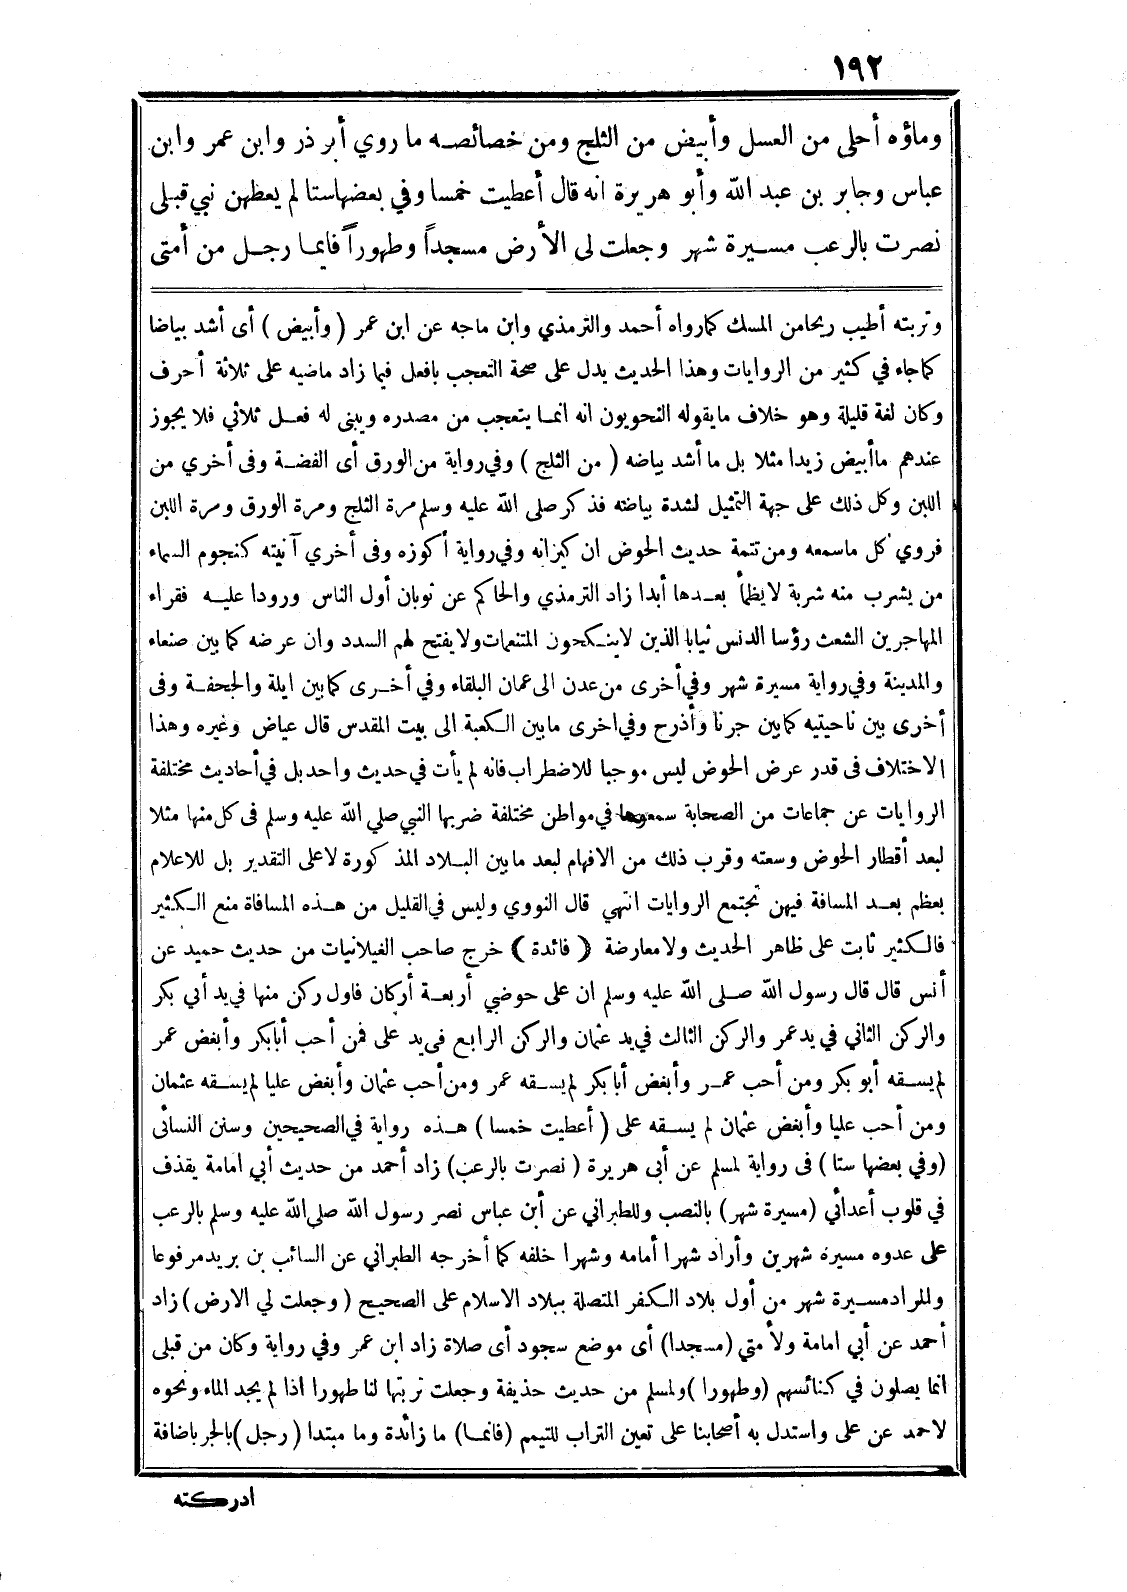 ١٩٢
وماؤه أحلى من العسل وأبيض من الثلج ومن خصائصه ما روي أبر ذر وابن عمر وابن
عباس وجابر بن عبد الله وأبو هريرة انه قال أعطيت خمسا وفي بعضهاستا لم يعظهن نبي قبلى
نصرت بالرعب مسيرة شهر وجعلت لى الأرض مسجداً وطهوراً فايما رجل من أمتى
وتربته أطيب ريحامن المسك كمارواه أحمد والترمذي وابن ماجه عن ابن عمر (وأبيض) أى أشد بياضا
كماجاء في كثير من الروايات وهذا الحديث يدل على صحة التعجب بافعل فيما زاد ماضيه على ثلاثة أحرف
وكان لغة قليلة وهو خلاف مايقوله النحويون انه انما يتعجب من مصدره ويبنى له فعل ثلاثي فلا يجوز
عندهم ماأبيض زيدا مثلا بل ما أشد بياضه (من الثلج) وفي رواية من الورق أى الفضة وفى أخري من
اللبن وكل ذلك على جهة التمثيل لشدة بياضه فذكر صلى الله عليه وسلم مرة الثلج ومرة الورق ومرة اللبن
فروي كل ماسمعه ومن تتمة حديث الحوض ان كيزانه وفي رواية أكوزه وفى أخري آنيته كنجوم السماء
من يشرب منه شربة لايظمأ بعدها أبدا زاد الترمذي والحاكم عن ثوبان أول الناس ورودا عليه فقراء
المهاجرين الشعث رؤسا الدنس ثيابا الذين لاينكحون المتنعمات ولايفتح لهم السدد وان عرضه كما بين صنعاء
والمدينة وفي رواية مسيرة شهر وفي أخرى من عدن الى عمان البلقاء وفي أخرى كمابين ايلة والجحفة وفى
أخرى بين ناحيتيه كمابين جربا وأذرح وفي اخرى مابين الكعبة الى بيت المقدس قال عياض وغيره وهذا
الاختلاف فى قدر عرض الحوض ليس موجبا للاضطراب فانه لم يأت في حديث واحد بل في أحاديث مختلفة
الروايات عن جماعات من الصحابة سمعوها في مواطن مختلفة ضربها النبي صلى الله عليه وسلم فى كل منها مثلا
لبعد أقطار الحوض وسعته وقرب ذلك من الافهام لبعد مابين البلاد المذكورة لاعلى التقدير بل للاعلام
بعظم بعد المسافة فبهن تجتمع الروايات انتهي قال النووي وليس في القليل من هذه المسافاة منع الكثير
فالكثير ثابت على ظاهر الحديث ولا معارضة (فائدة) خرج صاحب الغيلانيات من حديث حميد عن
أنس قال قال رسول الله صلى الله عليه وسلم ان على حوضي أربعة أركان فاول ركن منها في يد أبي بكر
والركن الثاني في يد عمر والركن الثالث في يد عثمان والركن الرابع فى يد على فمن أحب أبابكر وأبغض عمر
لم يسقه أبو بكر ومن أحب عمر وأبغض أبا بكر لم يسقه عمر ومن أحب عثمان وأبغض عليا لم يسقه عثمان
ومن أحب عليا وأبغض عثمان لم يسقه على (أعطيت خمسا) هذه رواية في الصحيحين وسنن النسائى
(وفي بعضها ستا) فى رواية لمسلم عن أبى هريرة (نصرت بالرعب) زاد أحمد من حديث أبي امامة يقذف
في قلوب أعدائي (مسيرة شهر) بالنصب وللطبراني عن أبن عباس نصر رسول الله صلى الله عليه وسلم بالرعب
على عدوه مسيرة شهرين وأراد شهرا أمامه وشهرا خلفه كما أخرجه الطبراني عن السائب بن يزيد مرفوعا
والمراد مسيرة شهر من أول بلاد الكفر المتصلة ببلاد الاسلام على الصحيح (وجعلت لي الارض) زاد
أحمد عن أبي امامة ولأمتي (مسجدا) أى موضع سجود أى صلاة زاد ابن عمر وفي رواية وكان من قبلى
انما يصلون في كنائسهم (وطهورا) ولمسلم من حديث حذيفة وجعلت تربتها لنا طهورا اذا لم يجد الماء ونحوه
لاحمد عن على واستدل به أصحابنا على تعين التراب للتيمم (فانما) ما زائدة وما مبتدا (رجل) بالجر باضافة
ادركته